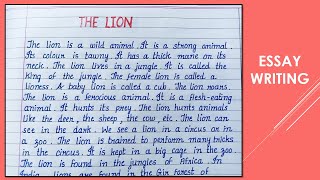 THE LION
The lion is a wild animal. It is a strong animal.
Its colour is tawny. It has a thick mane on its
neck. The lion lives in a jungle. It is called the
King of the jungle. The female lion is called a
lioness. A baby lion is called a cub. The lion roars.
The lion is a ferocious animal. It is a flesh-eating
animal. It hunts its prey. The lion hunts animals
like the deer, the sheep, the cow, etc. The lion can
see in the dark. We see a lion in a circus or in
a zoo. The lion is trained to perform many tricks
in the circus. It is kept in a big cage in the zoo.
The lion is found in the jungles of Africa. In
India lions are found in the Gir forest of
ESSAY
WRITING